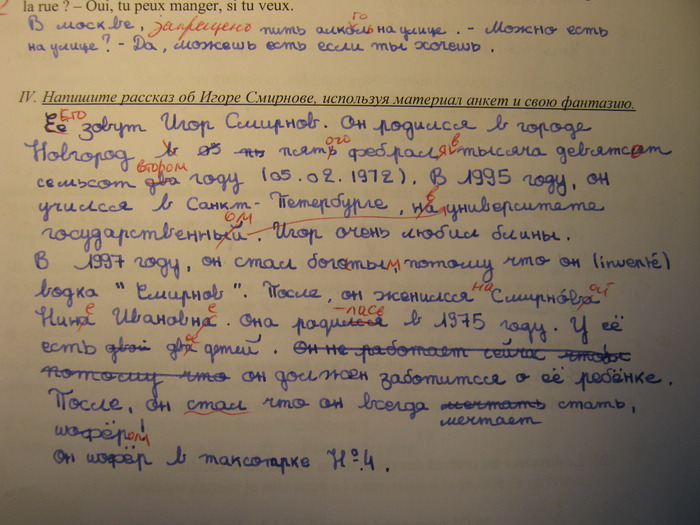 la rue ? – Oui, tu peux manger, si tu veux.
В москве, запрещено пить алкоголь на улице. - Можно есть
на улице? - Да, можешь есть если ты хочешь.
IV. Напишите рассказ об Игоре Смирнове, используя материал анкет и свою фантазию.
Его зовут Игор Смирнов. Он родился в городе
Новгород в пятого февраля тысяча девятсот
семьсот втором году (05.02.1972). В 1995 году, он
учился в Санкт-Петербурге, в университете
государственном. Игор очень любил блины.
В 1997 году, он стал богатым потому что он (inventé)
водка "Смирнов". После, он женился на Смирновой
Нине Ивановне. Она родилась в 1975 году. У её
есть двое детей. Он не работает сейчас чтобы
потому что он должен заботится о её ребёнке.
После, он стал что он всегда мечтать стать,
мечтает
шофёром!
Он шофёр в таксопарке Nº4.